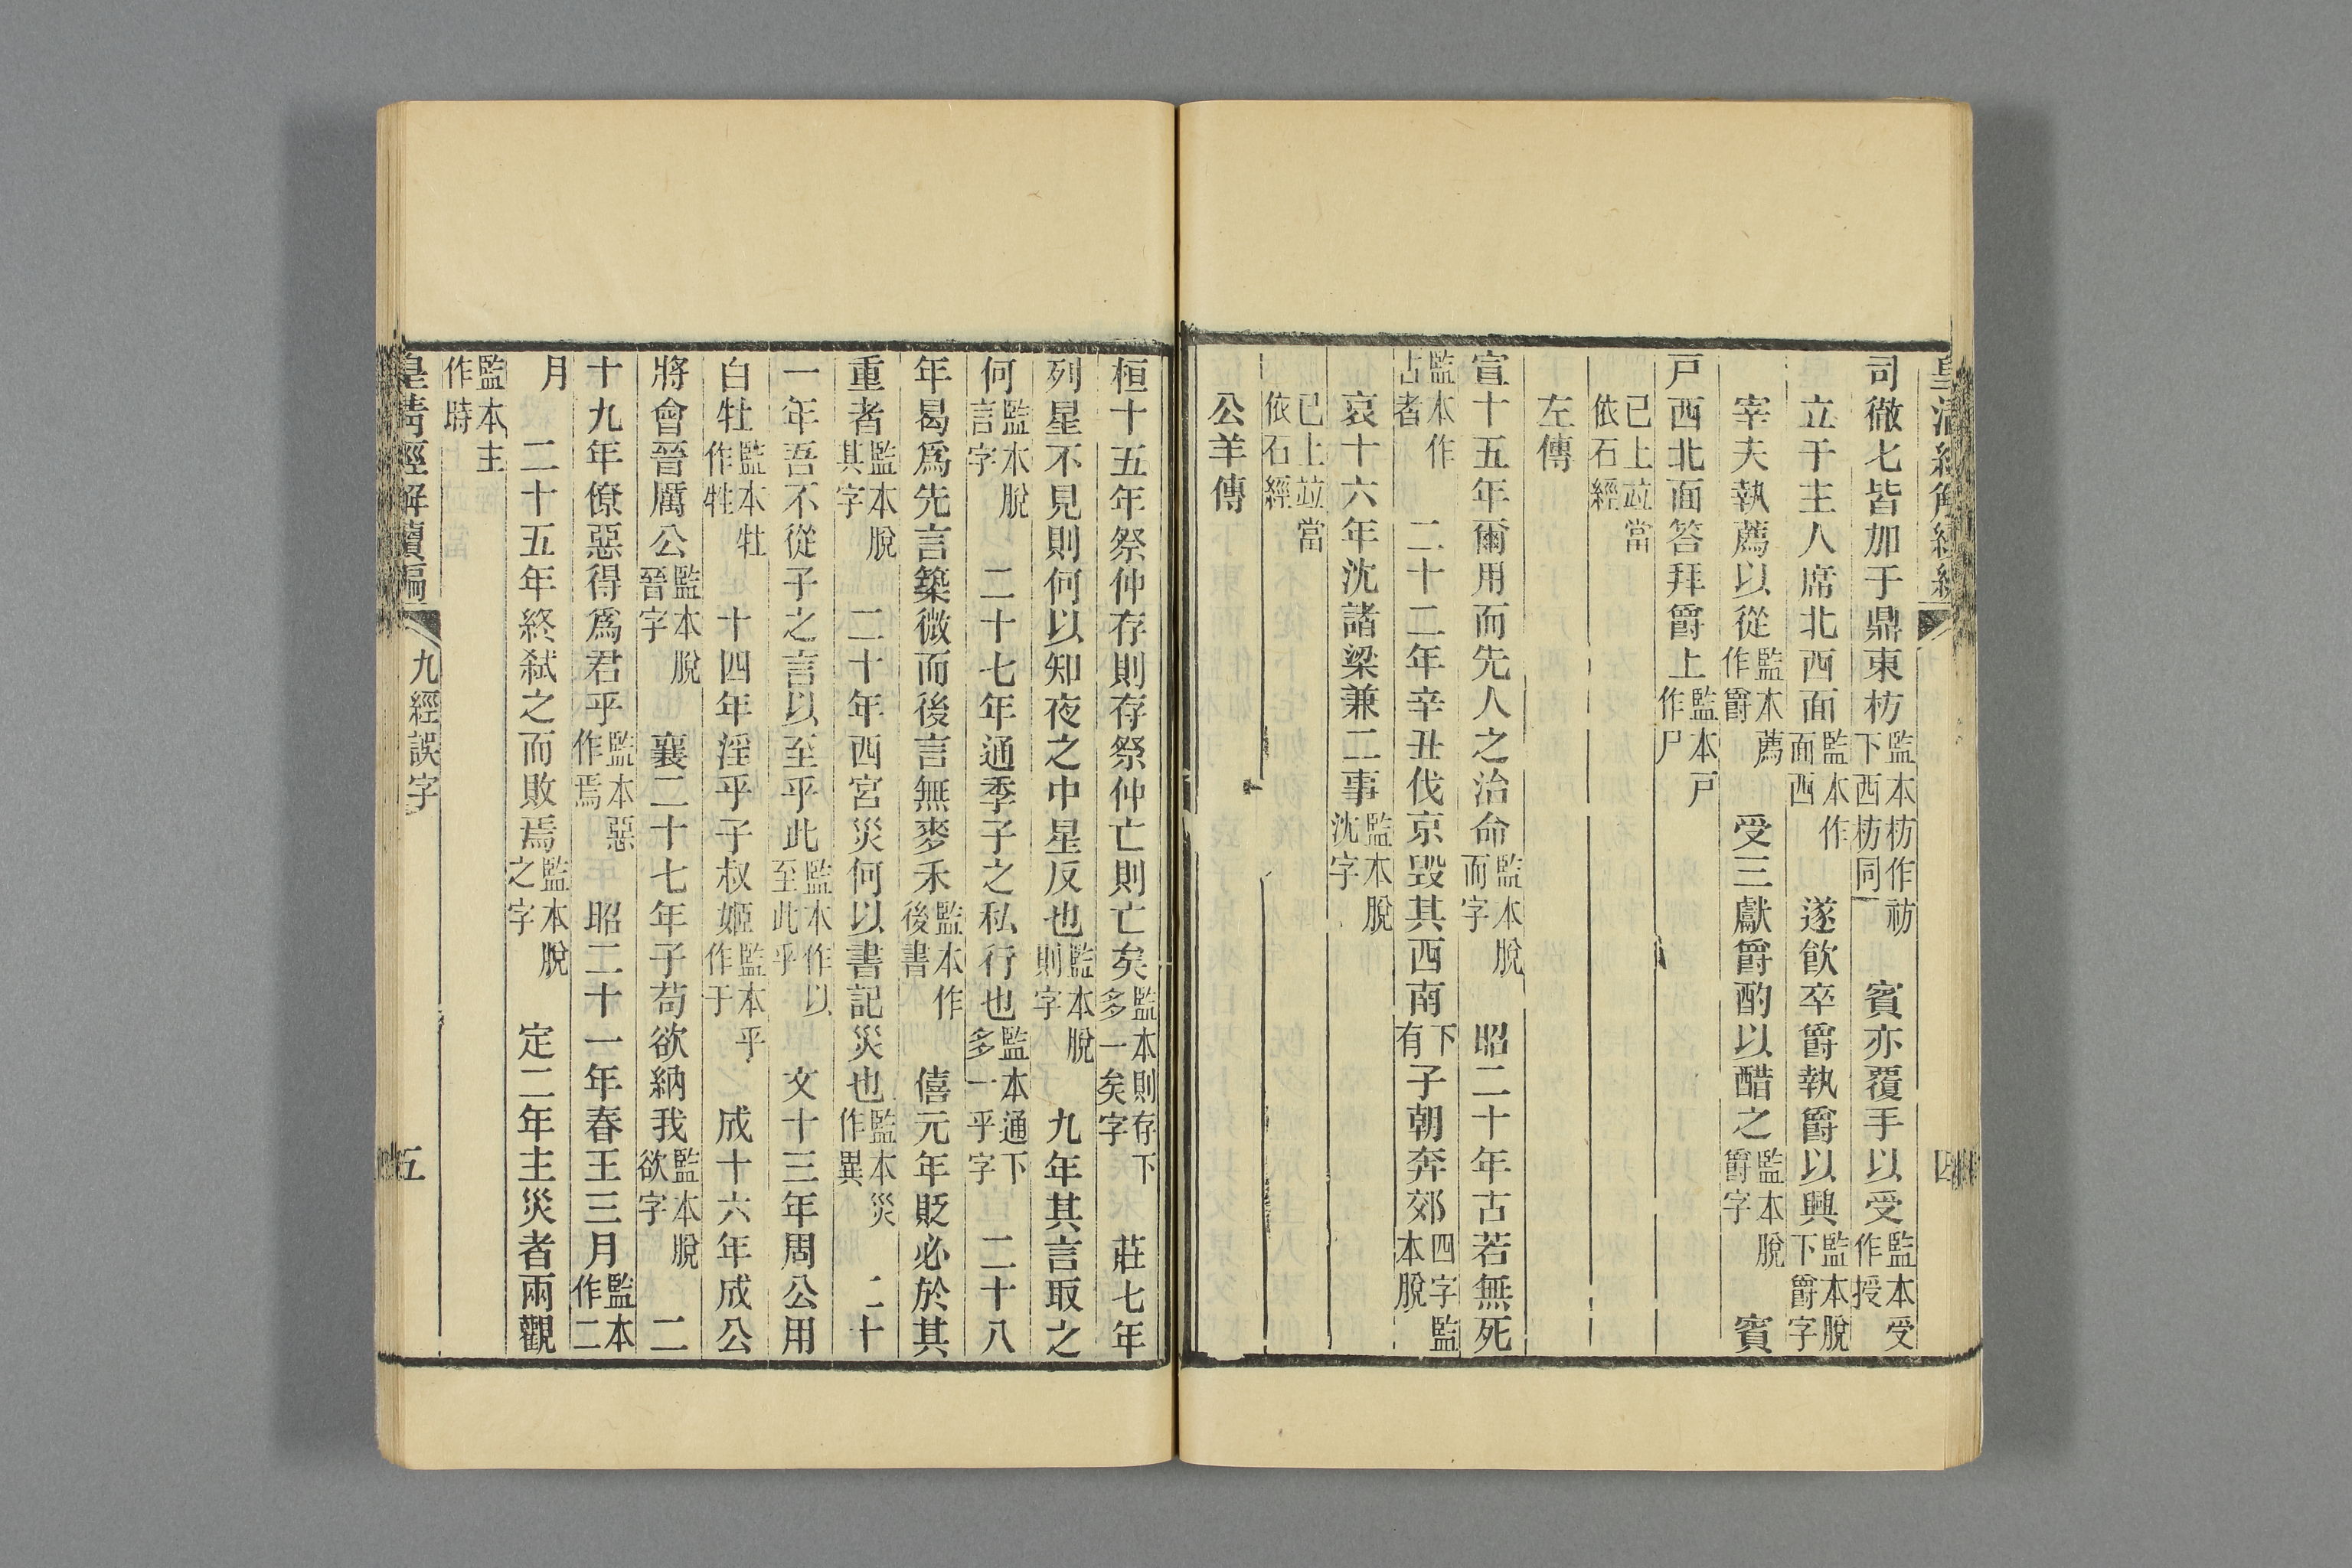 司徹七皆加于鼎東枋監本枋作祊下西枋同　賓亦覆手以受監本受作授
立于主人席北西面監本作面西　遂飲卒爵執爵以興監本脫下爵字
宰夫執薦以從監本薦作爵　受三獻爵酌以醋之監本脫爵字　賓
戸西北面答拜爵上監本戸作尸
已上竝當依石經
左傳
宣十五年爾用而先人之治命監本脫而字　昭二十年古若無死
監本作古者　二十二年辛丑伐京毀其西南下有子朝奔郊四字監本脫
哀十六年沈諸梁兼二事監本脫沈字
已上竝當依石經
公羊傳
桓十五年祭仲存則存祭仲亡則亡矣監本則存下多一矣字　莊七年
列星不見則何以知夜之中星反也監本脫則字　九年其言取之
何監本脫言字　二十七年通季子之私行也監本通下多一乎字　二十八
年曷爲先言築微而後言無麥禾監本作後書　僖元年貶必於其
重者監本脫其字　二十年西宮災何以書記災也監本災作異　二十
一年吾不從子之言以至乎此監本作以至此乎　文十三年周公用
白牡監本牡作牲　十四年淫乎子叔姬監本乎作于　成十六年成公
將會晉厲公監本脫晉字　襄二十七年子苟欲納我監本脫欲字　二
十九年僚惡得爲君乎監本惡作焉　昭二十一年春王三月監本作二
月　二十五年終弑之而敗焉監本脫之字　定二年主災者兩觀
監本主作時
皇清經解續編　九經誤字　五